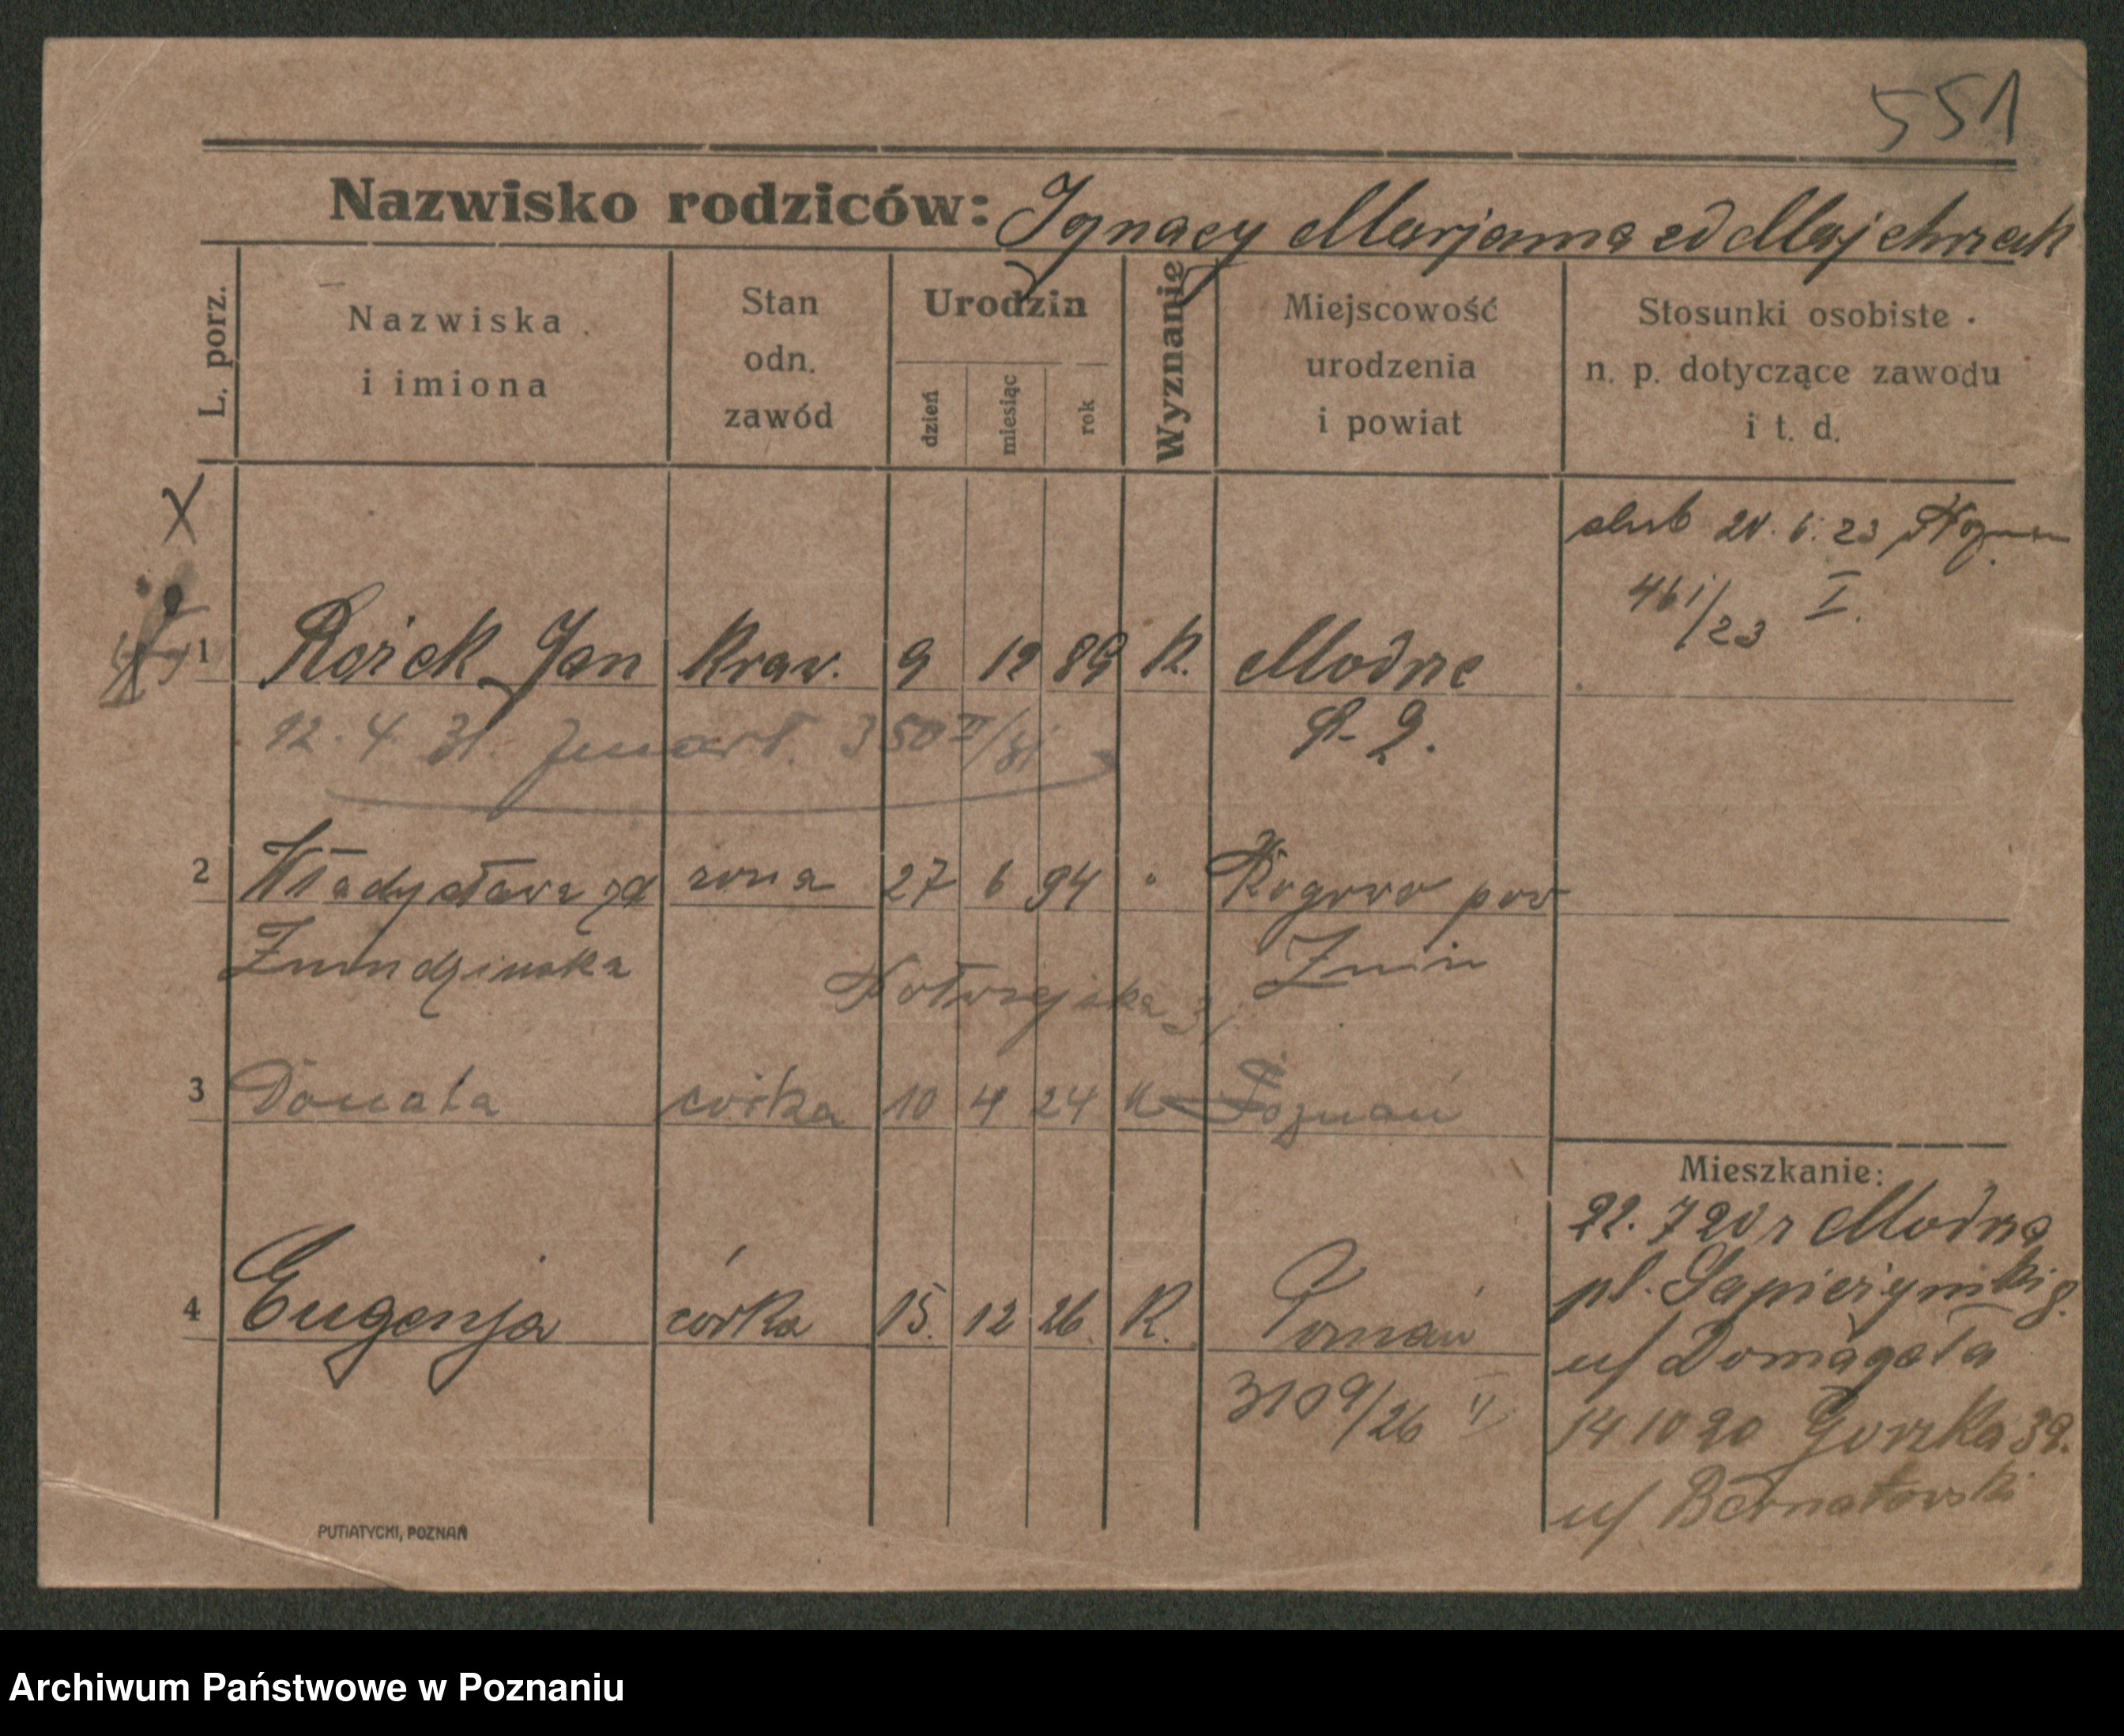 551
Nazwisko rodziców: Ignacy Marjanna zd Majchrzak
L. porz.
Nazwiska i imiona
Stan odn. zawód
Urodzin
dzień
miesiąc
rok
Wyznanie
Miejscowość urodzenia i powiat
Stosunki osobiste n. p. dotyczące zawodu i t. d.
X
ślub 20. 6. 23 Pozn
461/23 I.
1 Rożek Jan kraw. 9 12 89 K. Modrze
12. 4. 31. zmarł. 350 II/31
2 Władysława zd żona 27 6 94 " Rogowo pow
Żmudzińska Żnin
31
3 Donata córka 10 4 24 K Poznań
Mieszkanie:
22. 7 20 r Modrze
pl. Sapieżyński 8.
u/ Domagała
4 Eugenja córka 15. 12 26. K. Poznań
3109/26 II
14 10 20 39.
u/ Bernatowski
PUTIATYCKI, POZNAŃ
Archiwum Państwowe w Poznaniu